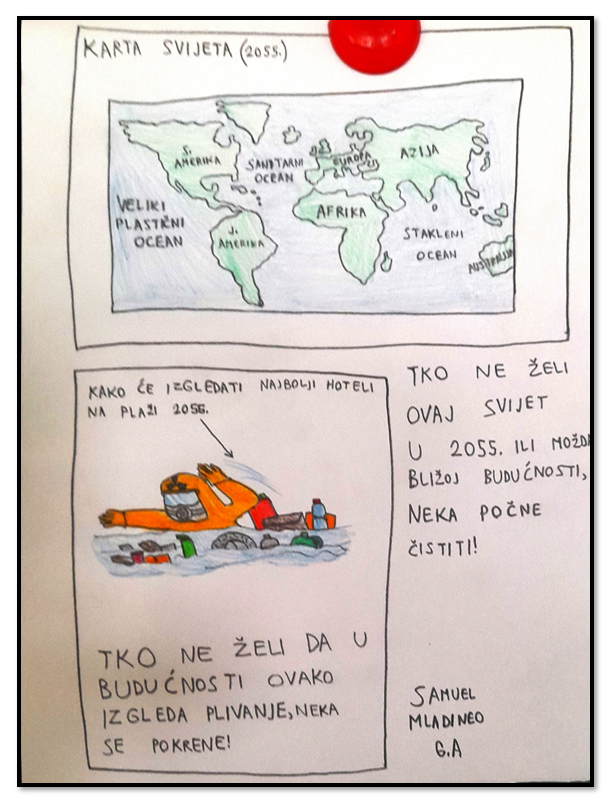 KARTA SVIJETA (2055.)
S.
AMERIKA
SANITARNI
OCEAN
EUROPA
AZIJA
VELIKI
PLASTIČNI
OCEAN
AFRIKA
J.
AMERIKA
STAKLENI
OCEAN
AUSTRALIJA
KAKO ĆE IZGLEDATI NAJBOLJI HOTELI
NA PLAŽI 2055.
TKO NE ŽELI DA U
BUDUĆNOSTI OVAKO
IZGLEDA PLIVANJE, NEKA
SE POKRENE!
TKO NE ŽELI
OVAJ SVIJET
U 2055. ILI MOŽDA
BLIŽOJ BUDUĆNOSTI,
NEKA POČNE
ČISTITI!
SAMUEL
MLADINEO
6.A